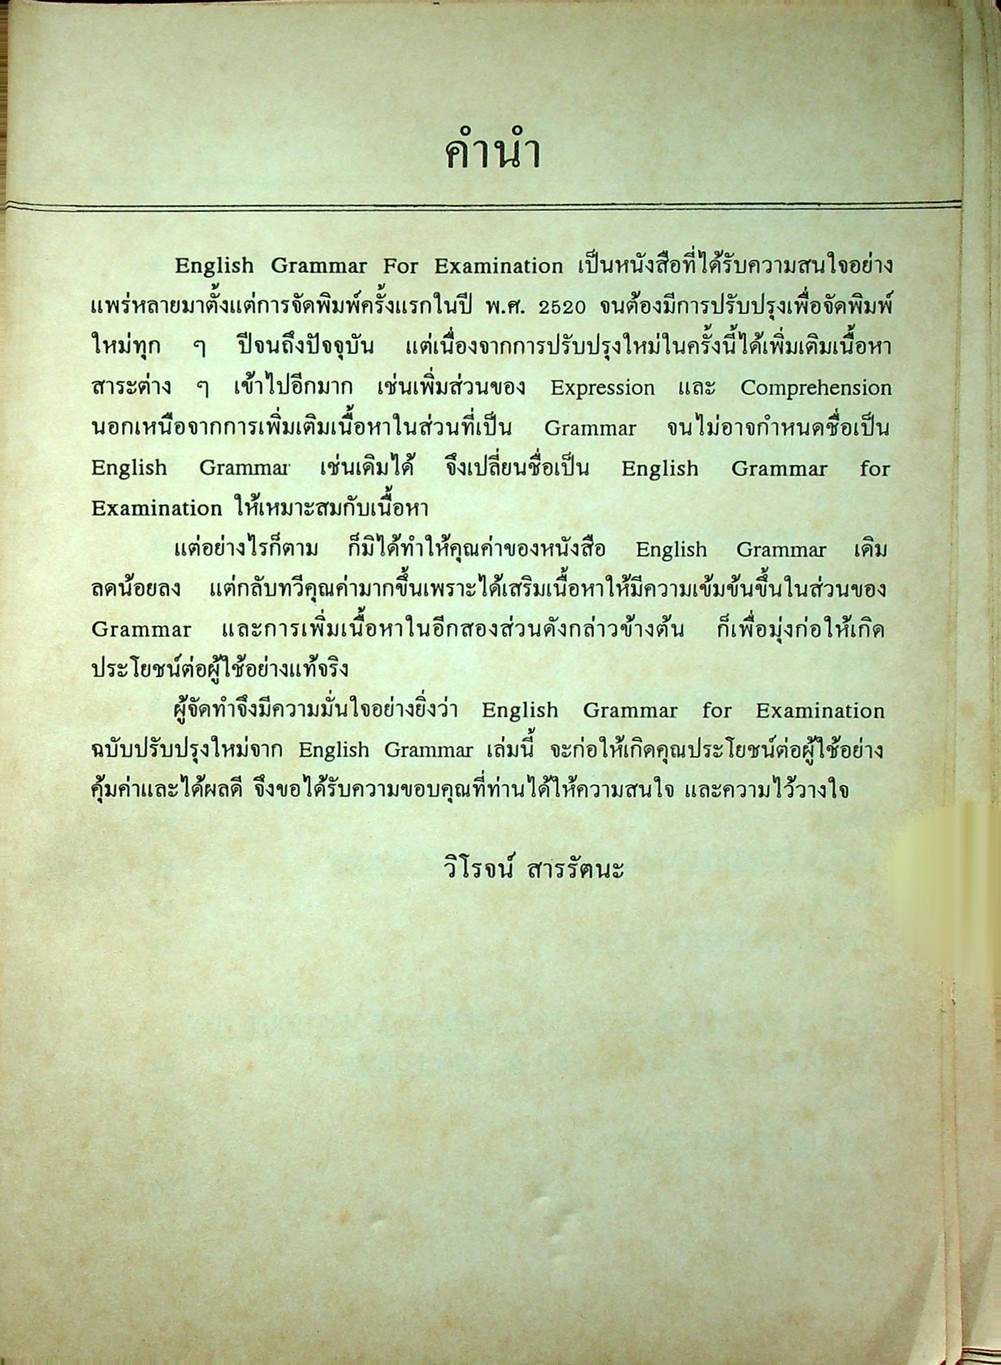 คำนำ
English Grammar For Examination เป็นหนังสือที่ได้รับความสนใจอย่าง
แพร่หลายมาตั้งแต่การจัดพิมพ์ครั้งแรกในปี พ.ศ. 2520 จนต้องมีการปรับปรุงเพื่อจัดพิมพ์
ใหม่ทุก ๆ ปีจนถึงปัจจุบัน แต่เนื่องจากการปรับปรุงใหม่ในครั้งนี้ได้เพิ่มเติมเนื้อหา
สาระต่าง ๆ เข้าไปอีกมาก เช่นเพิ่มส่วนของ Expression และ Comprehension
นอกเหนือจากการเพิ่มเติมเนื้อหาในส่วนที่เป็น Grammar จนไม่อาจกำหนดชื่อเป็น
English Grammar เช่นเดิมได้ จึงเปลี่ยนชื่อเป็น English Grammar for
Examination ให้เหมาะสมกับเนื้อหา
แต่อย่างไรก็ตาม ก็มิได้ทำให้คุณค่าของหนังสือ English Grammar เดิม
ลดน้อยลง แต่กลับทวีคุณค่ามากขึ้นเพราะได้เสริมเนื้อหาให้มีความเข้มข้นขึ้นในส่วนของ
Grammar และการเพิ่มเนื้อหาในอีกสองส่วนดังกล่าวข้างต้น ก็เพื่อมุ่งก่อให้เกิด
ประโยชน์ต่อผู้ใช้อย่างแท้จริง
ผู้จัดทำจึงมีความมั่นใจอย่างยิ่งว่า English Grammar for Examination
ฉบับปรับปรุงใหม่จาก English Grammar เล่มนี้ จะก่อให้เกิดคุณประโยชน์ต่อผู้ใช้อย่าง
คุ้มค่าและได้ผลดี จึงขอได้รับความขอบคุณที่ท่านได้ให้ความสนใจ และความไว้วางใจ
วิโรจน์ สารรัตนะ